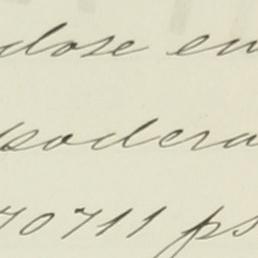 dose en
podera
70711 ps